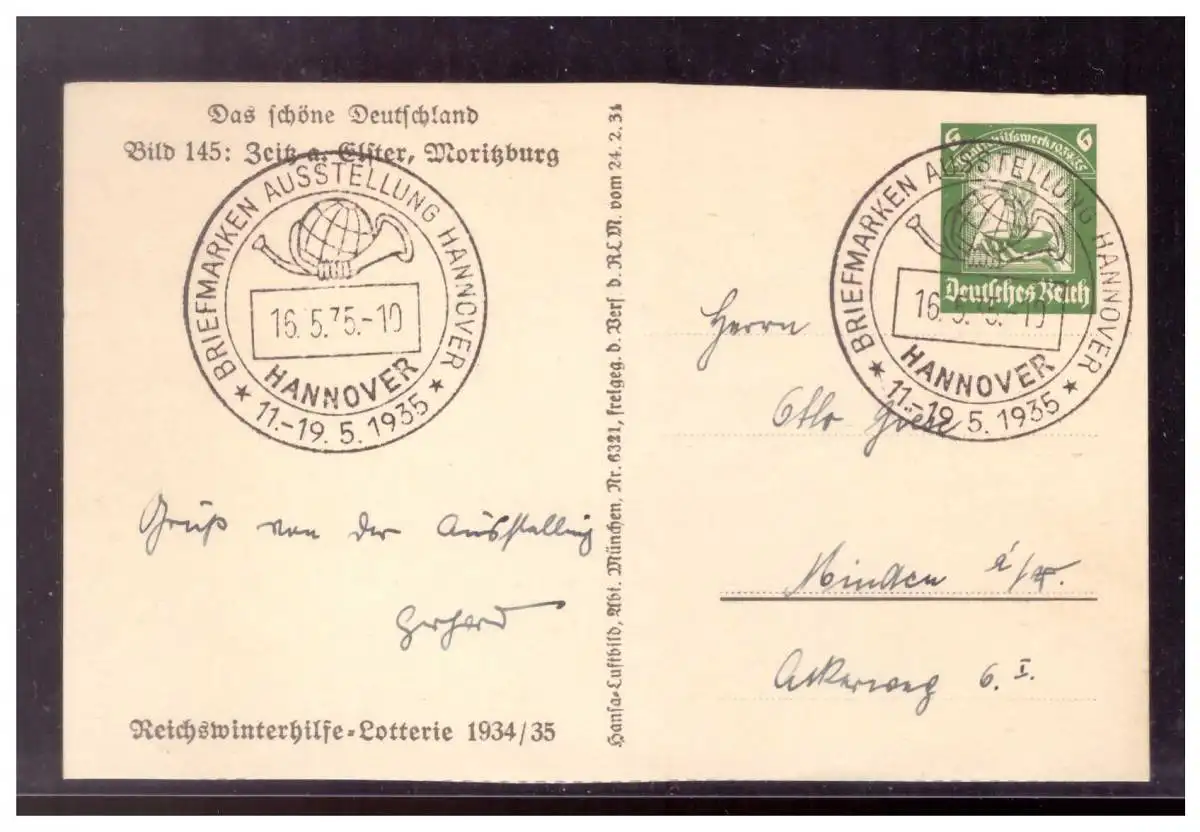 Das schöne Deutschland
Bild 145: Zeitz a. Elster, Moritzburg
BRIEFMARKEN AUSSTELLUNG HANNOVER
16.5.35.-10
HANNOVER
★ 11.-19.5.1935 ★
Gruß von der Ausstellung
Gerhard
Reichswinterhilfe-Lotterie 1934/35
Hansa-Luftbild, Abt. München, Nr. 6321, freigeg. d. Verf d. R.L.M. vom 24.2.34
6 6
Deutsches Reich
BRIEFMARKEN AUSSTELLUNG HANNOVER
16.5.35.-10
HANNOVER
★ 11.-19.5.1935 ★
Herrn
Otto Giese
Minden i/W.
Ackerweg 6. I.